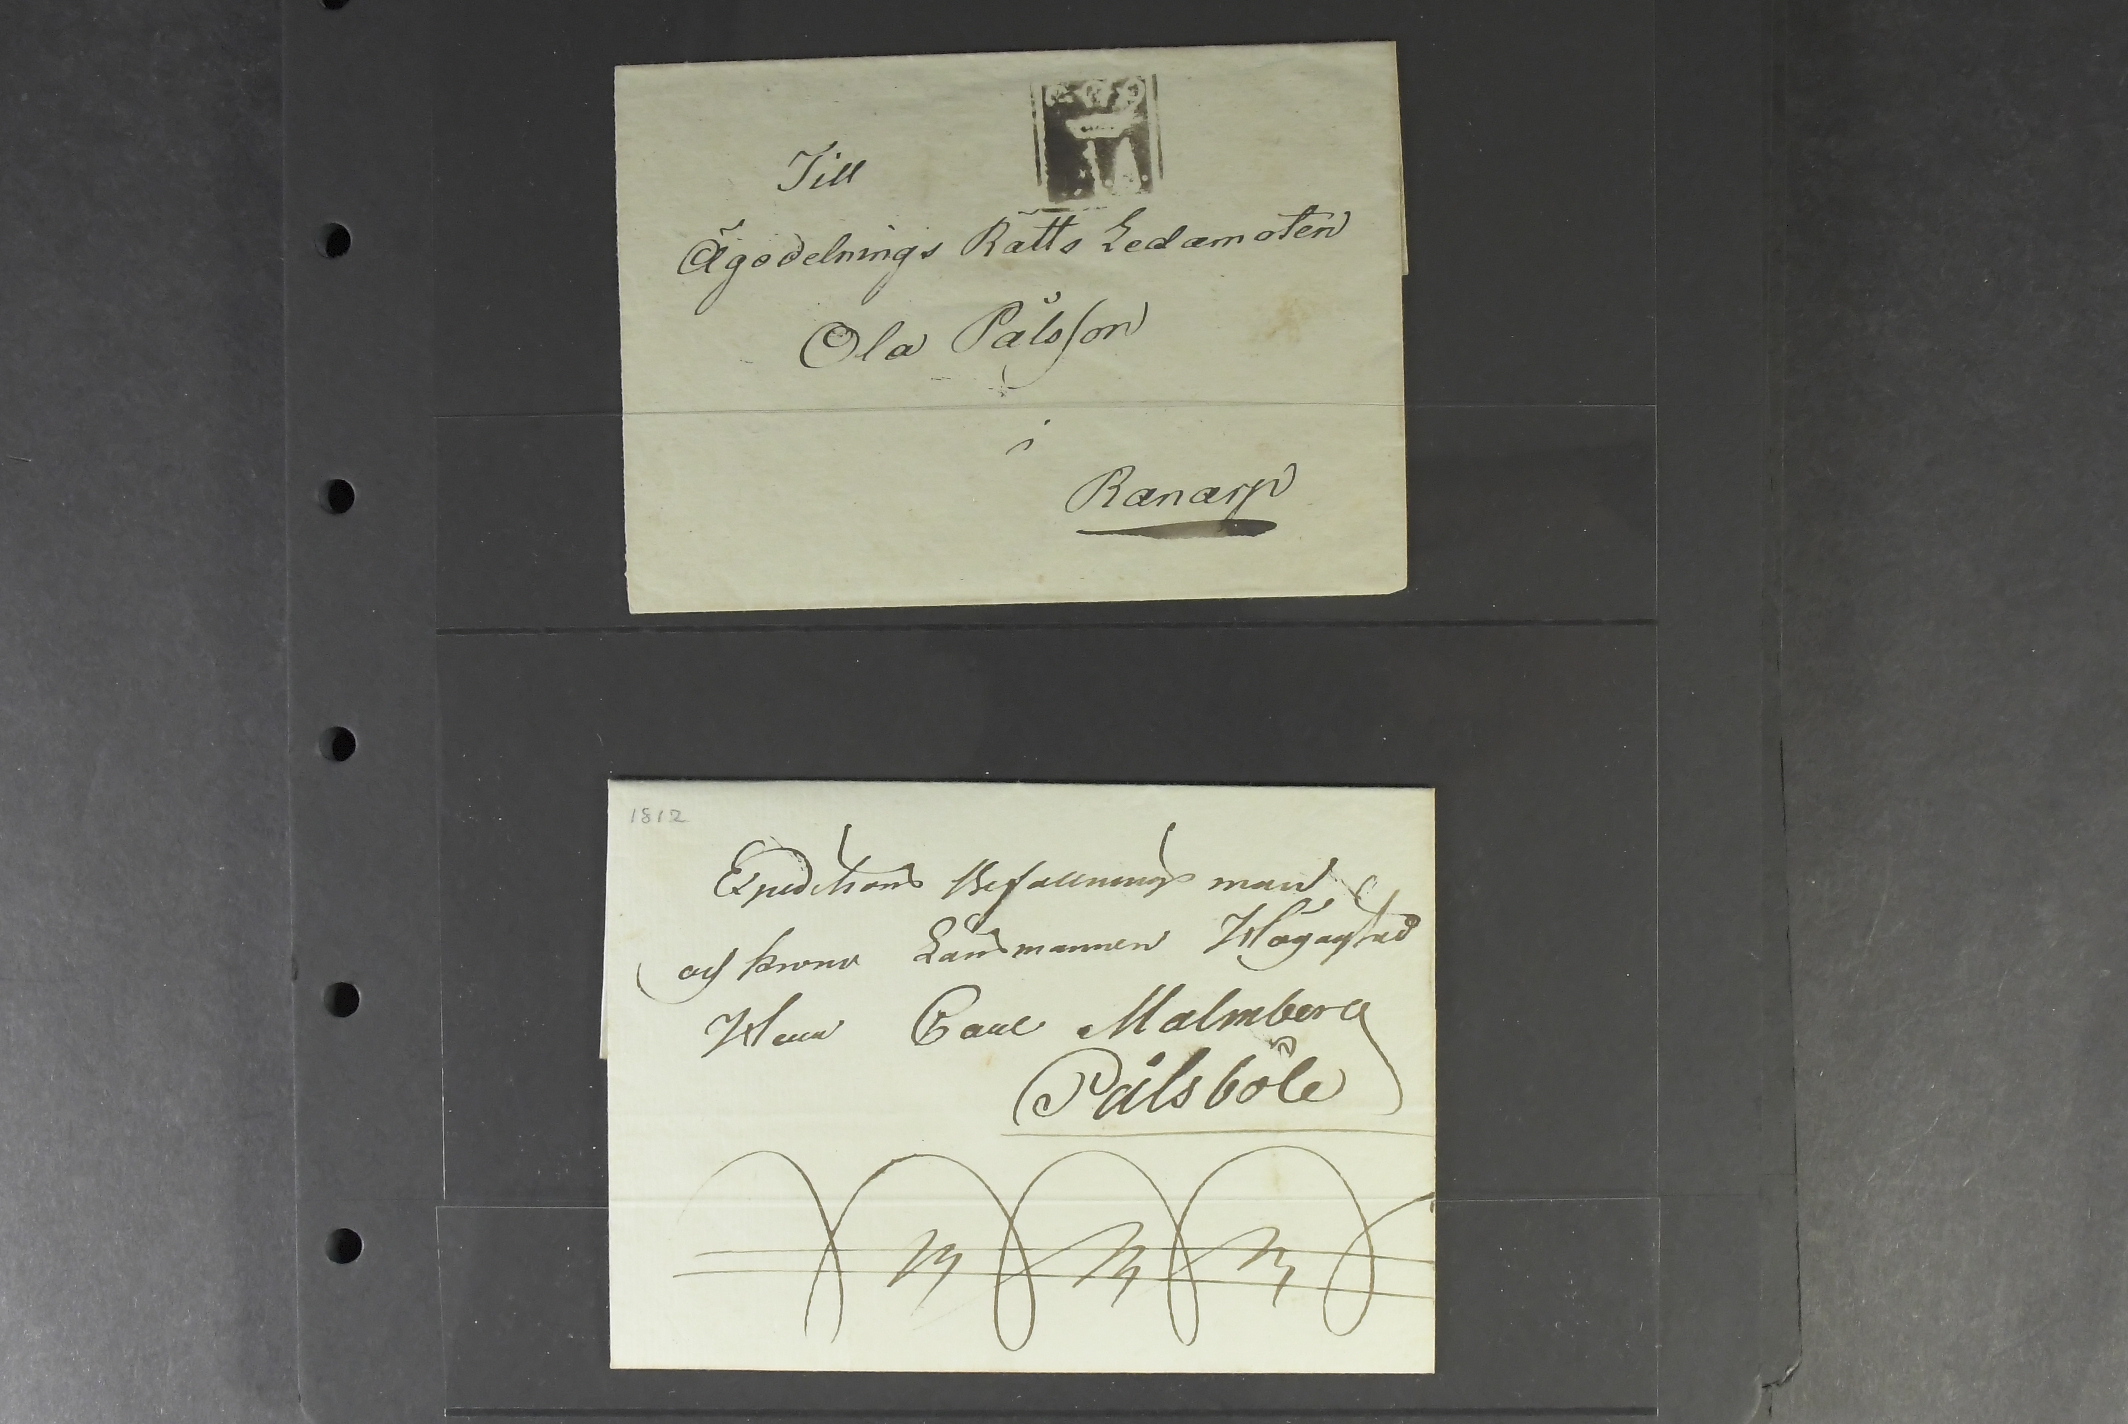 Till
Ägodelnings Rätts Ledamoten
Ola Pålsson
i
Ranarp
1812
Expeditions Befallningsman
och Krono Länsmannen Högagtad
Herr Carl Malmberg
Pålsböle